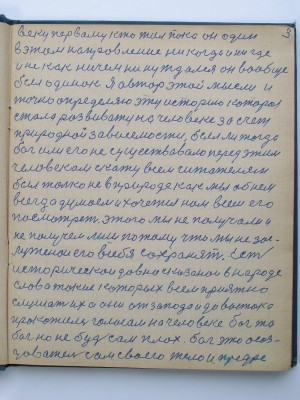 3
веку первому кто жил пока он один
в этом направление никогда и ни где
и не как ничем ни нуждался он вообще
был одинок Я автор этой мысли и
точно определяю эту историю которая
стала развивату на человеке за счет
природной зависемости, был ли тогда
бог или его не существовало перед этим
человеком скажу всем читателям
был только не в природе как мы об нем
всегда думаем и хочетса нам всем его
посмотреть этого мы не получали и
не получем мы и потому что мы не зас-
лужено его в себя сохранят. Ест
исторически давно сказаной в народе
слова такие которых всем приятно
слушат их а они от запода и до востока
прокотилис голосам на человеке бог то
бог но не буд сам плох. бог это осоз-
дователь сам своего тело и